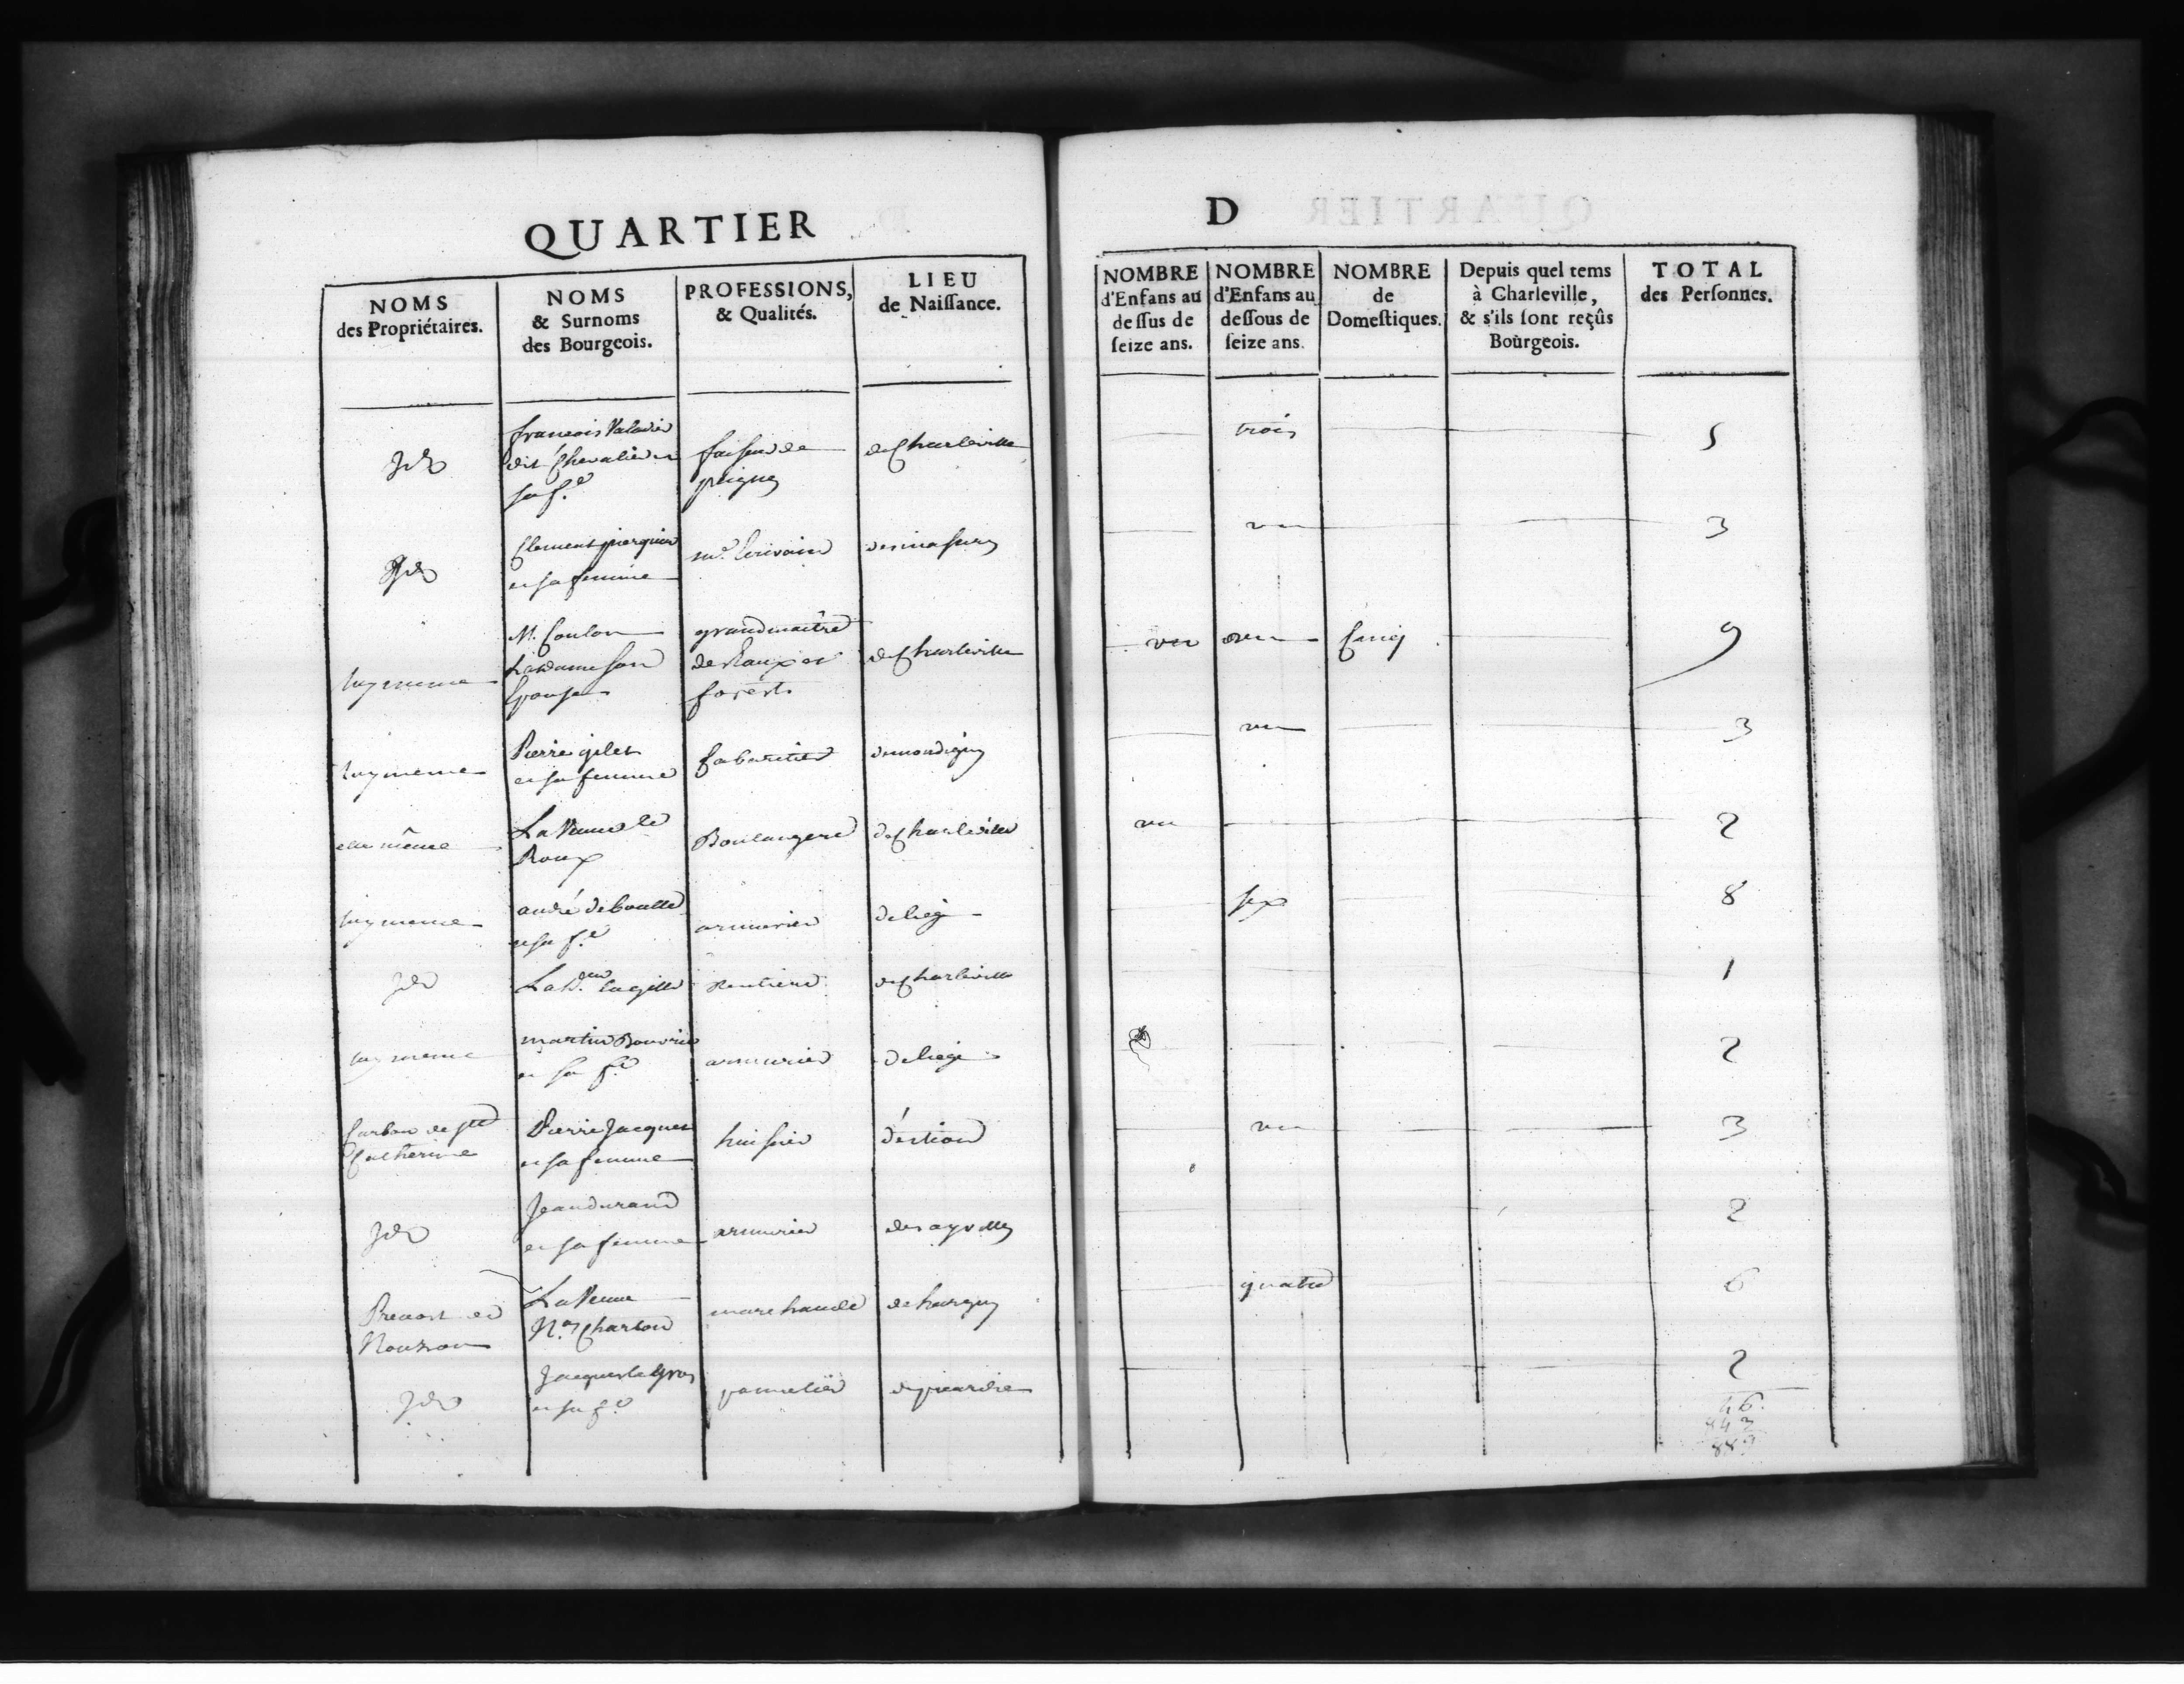 QUARTIER
D
NOMS
des Propriétaires.
NOMS
& Surnoms
des Bourgeois.
PROFESSIONS,
& Qualités.
LIEU
de Naiſſance.
NOMBRE
d'Enfans au
deſſus de
ſeize ans.
NOMBRE
d'Enfans au
deſſous de
ſeize ans.
NOMBRE
de
Domeſtiques.
Depuis quel tems
à Charleville,
& s'ils ſont reçûs
Bourgeois.
TOTAL
des Perſonnes.
Jd
francois Valadier
dit Chevalier et
sa f.e
faiseur de
peignes
de Charleville
trois
5
Jd
Clement pierquin
et sa femme
m.e Ecrivain
un
3
luy meme
M. Coulon
La dame son
Epouse
grand maître
des Eaux et
forests
de Charleville
un
un
Cinq
9
luy meme
Pierre gilet
et sa femme
Cabaretier
de mondigny
un
3
elle même
La Veuve le
Roux
Boulangere
de Charleville
un
2
luy meme
andré
et sa f.e
armurier
de liege
six
8
Jd
La
Rentiere
de Charleville
1
luy meme
martin
et sa f.e
armurier
de liege
2
de Ste
Catherine
Pierre Jacques
et sa femme
huissier
un
3
Jd
Jean durand
et sa femme
armurier
des ayvelles
2
Prevost de
Nouzon
La Veuve
N.as Charton
marchande
de hargny
quatre
6
Jd
Jacques le Gros
et sa f.e
de picardie
2
46.
843
889